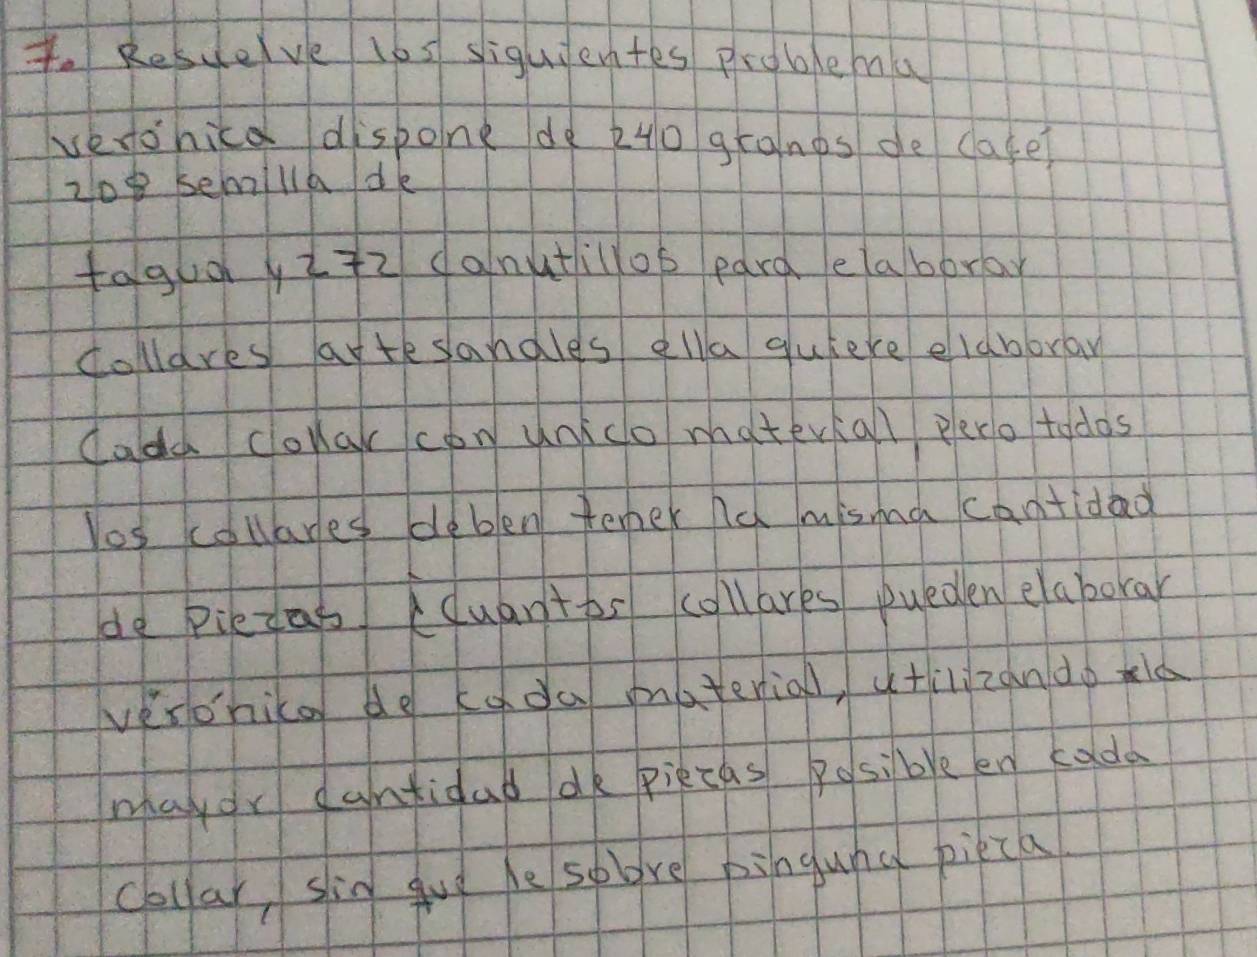 7. Resuelve los siguientes problema
verónica dispone de 240 granos de café,
208 semilla de
tagua y 272 canutillos para elaborar
collares artesanales ella quiere elaborar
Cada collar con unico material, pero todos
los collares deben tener la misma cantidad
de piezas. ¿Cuantos collares pueden elaborar
verónica de cada material, utilizando la
mayor cantidad de piezas posible en cada
collar, sin que le sobre ninguna pieza